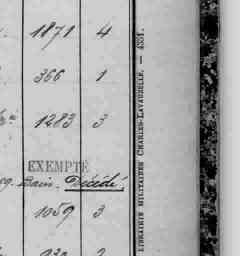 1871 4
366 1
1283 3
EXEMPTÉ
Décédé.
1059 3
LIBRAIRIE MILITAIRE CHARLES-LAVAUZELLE. — 4331.